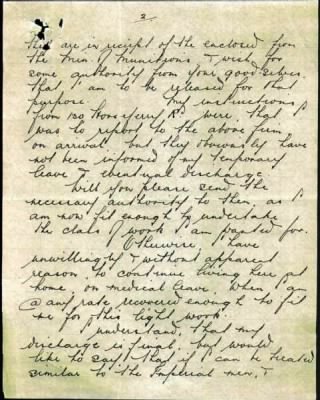 2
they are in receipt of the enclosed from
the Min. of Munitions, & wish for
some authority from your good selves
that I am to be released for that
purpose. My instructions
from 130 Horseferry Rd were, that I
was to report to the above firm
on arrival. but they obviously have
not been informed of my temporary
leave & eventual discharge.
Will you please send the
necessary authority to them, as I
am now fit enough to undertake
the class of work I am wanted for.
Otherwise, I have
unwillingly & without apparent
reason, to continue living here at
home, on medical leave, when I am
@ any rate recovered enough to fit
me for this light work.
I understand, that my
discharge is final, but would
like to say that if I can be treated
similar to the Imperial men, &